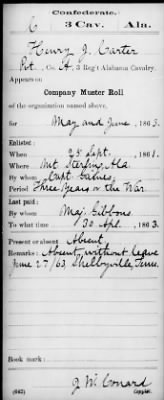 Confederate.
C 3 Cav. Ala.
Henry J. Carter
Pvt., Co. A, 3 Reg't Alabama Cavalry.
Appears on
Company Muster Roll
of the organization named above,
for May and June, 1863.
Enlisted:
When 25 Sept., 1861.
Where Mt Sterling Ala.
By whom Capt. Gaines
Period Three Years or the War
Last paid:
By whom Maj. Gibbons
To what time 30 Apl., 1863
Present or absent Absent
Remarks: Absent without leave
June 27/63 Shelbyville, Tenn.
Book mark:
J. W. Conard
(642) Copyist.